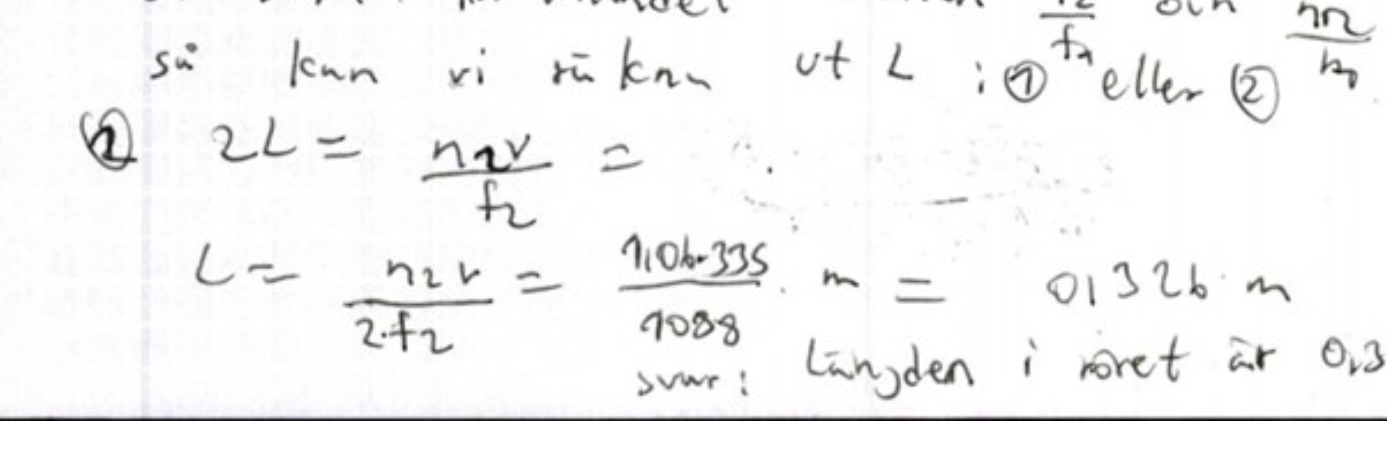 så kan vi räkna ut L : ① f₁ eller ②
② 2L = n₂v / f₂ =
L = n₂v / 2·f₂ = 1,06·335 / 1088 m = 0,326 m
svar: Längden i röret är 0,3